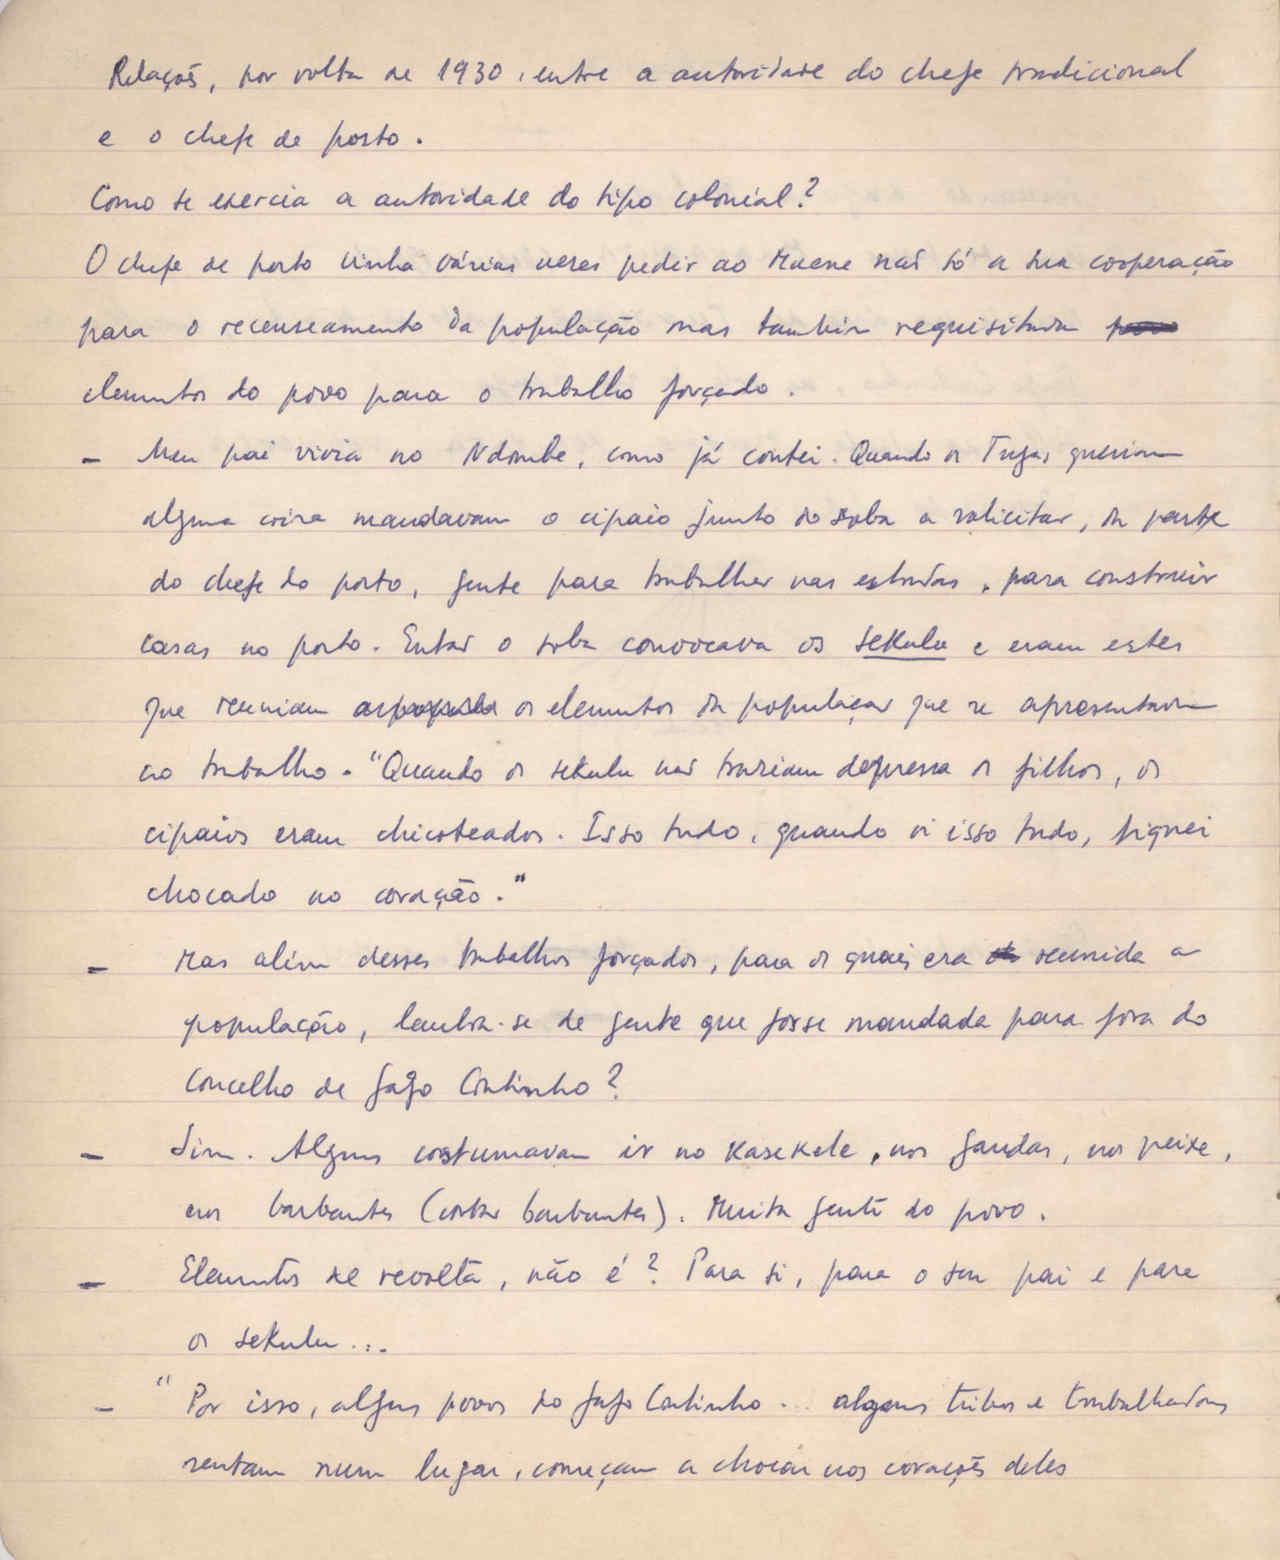 Relações, por volta de 1930, entre a autoridade do chefe tradicional
e o chefe de posto.
Como se exercia a autoridade do tipo colonial?
O chefe de posto vinha várias vezes pedir ao Muene não só a sua cooperação
para o recenseamento da população mas também requisitava
elementos do povo para o trabalho forçado.
- Meu pai vivia no Ndombe, como já contei. Quando os Tugas queriam
alguma coisa mandavam o cipaio junto do soba a solicitar, da parte
do chefe do posto, gente para trabalhar nas estradas, para construir
casas no posto. Então o soba convocava os sekulu e eram estes
que reuniam os elementos da população que se apresentavam
ao trabalho. "Quando os sekulu não traziam depressa os filhos, os
cipaios eram chicoteados. Isso tudo, quando vi isso tudo, fiquei
chocado no coração."
- Mas além desses trabalhos forçados, para os quais era reunida a
população, lembra-se de gente que fosse mandada para fora do
Concelho de Gago Coutinho?
- Sim. Alguns costumavam ir no Kasekele, nos Gandas, no peixe,
nos barbantes (cortar barbantes). Muita gente do povo.
- Elementos de revolta, não é? Para si, para o seu pai e para
os sekulu...
- "Por isso, alguns povos do Gago Coutinho... alguns tribos e trabalhadores
sentam num lugar, começam a chocar nos corações deles